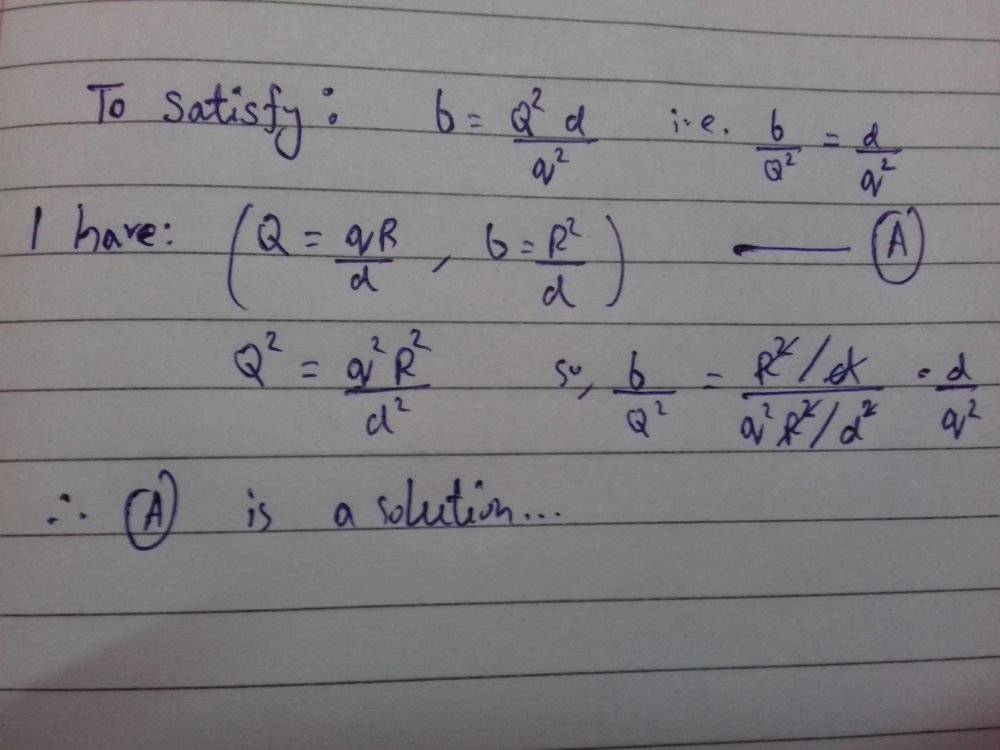 To satisfy: b = Q² d / q² i.e. b / Q² = d / q²
I have: ( Q = qR / d , b = R² / d ) —— (A)
Q² = q² R² / d² so, b / Q² = R² / d / q² R² / d² = d / q²
∴ (A) is a solution...